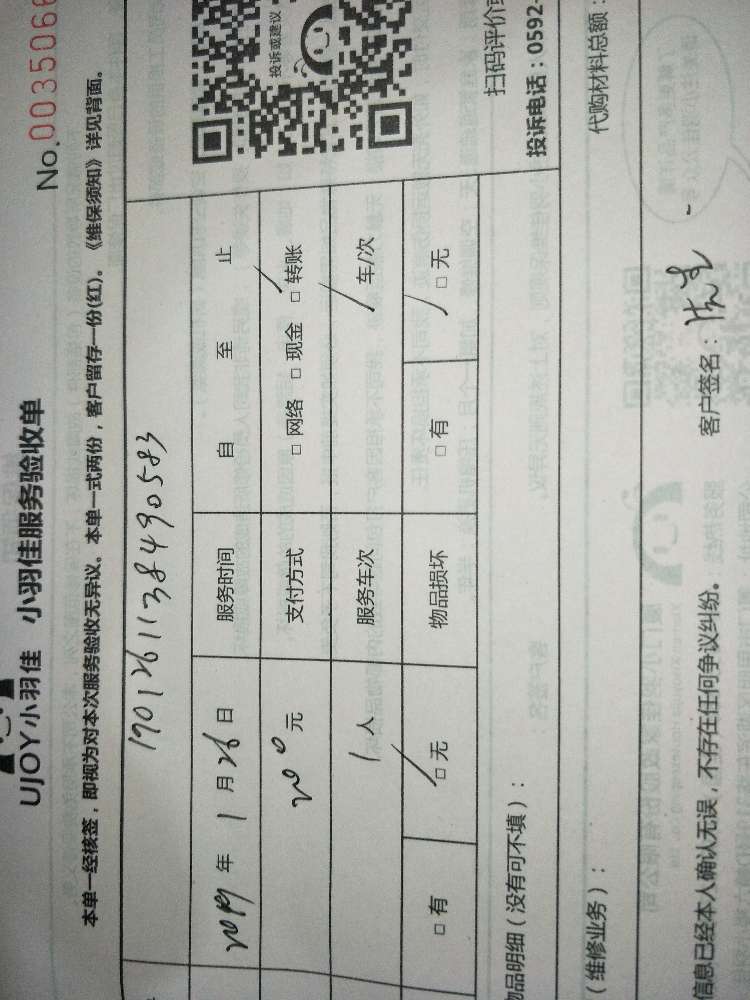 UJOY小羽佳 小羽佳服务验收单
No.0035066
本单一经核签，即视为对本次服务验收无异议。本单一式两份，客户留存一份(红)。《维保须知》详见背面。
1901261138490583
2019 年 1 月 26 日 服务时间 自 至 止
200 元 支付方式 □ 网络 □ 现金 □ 转账
1 人 服务车次 / 车/次
□ 有 □ 无 物品损坏 □ 有 □ 无
投诉或建议
物品明细（没有可不填）：
扫码评价或
投诉电话：0592-
（维修业务）：
代购材料总额：
信息已经本人确认无误，不存在任何争议纠纷。 客户签名：